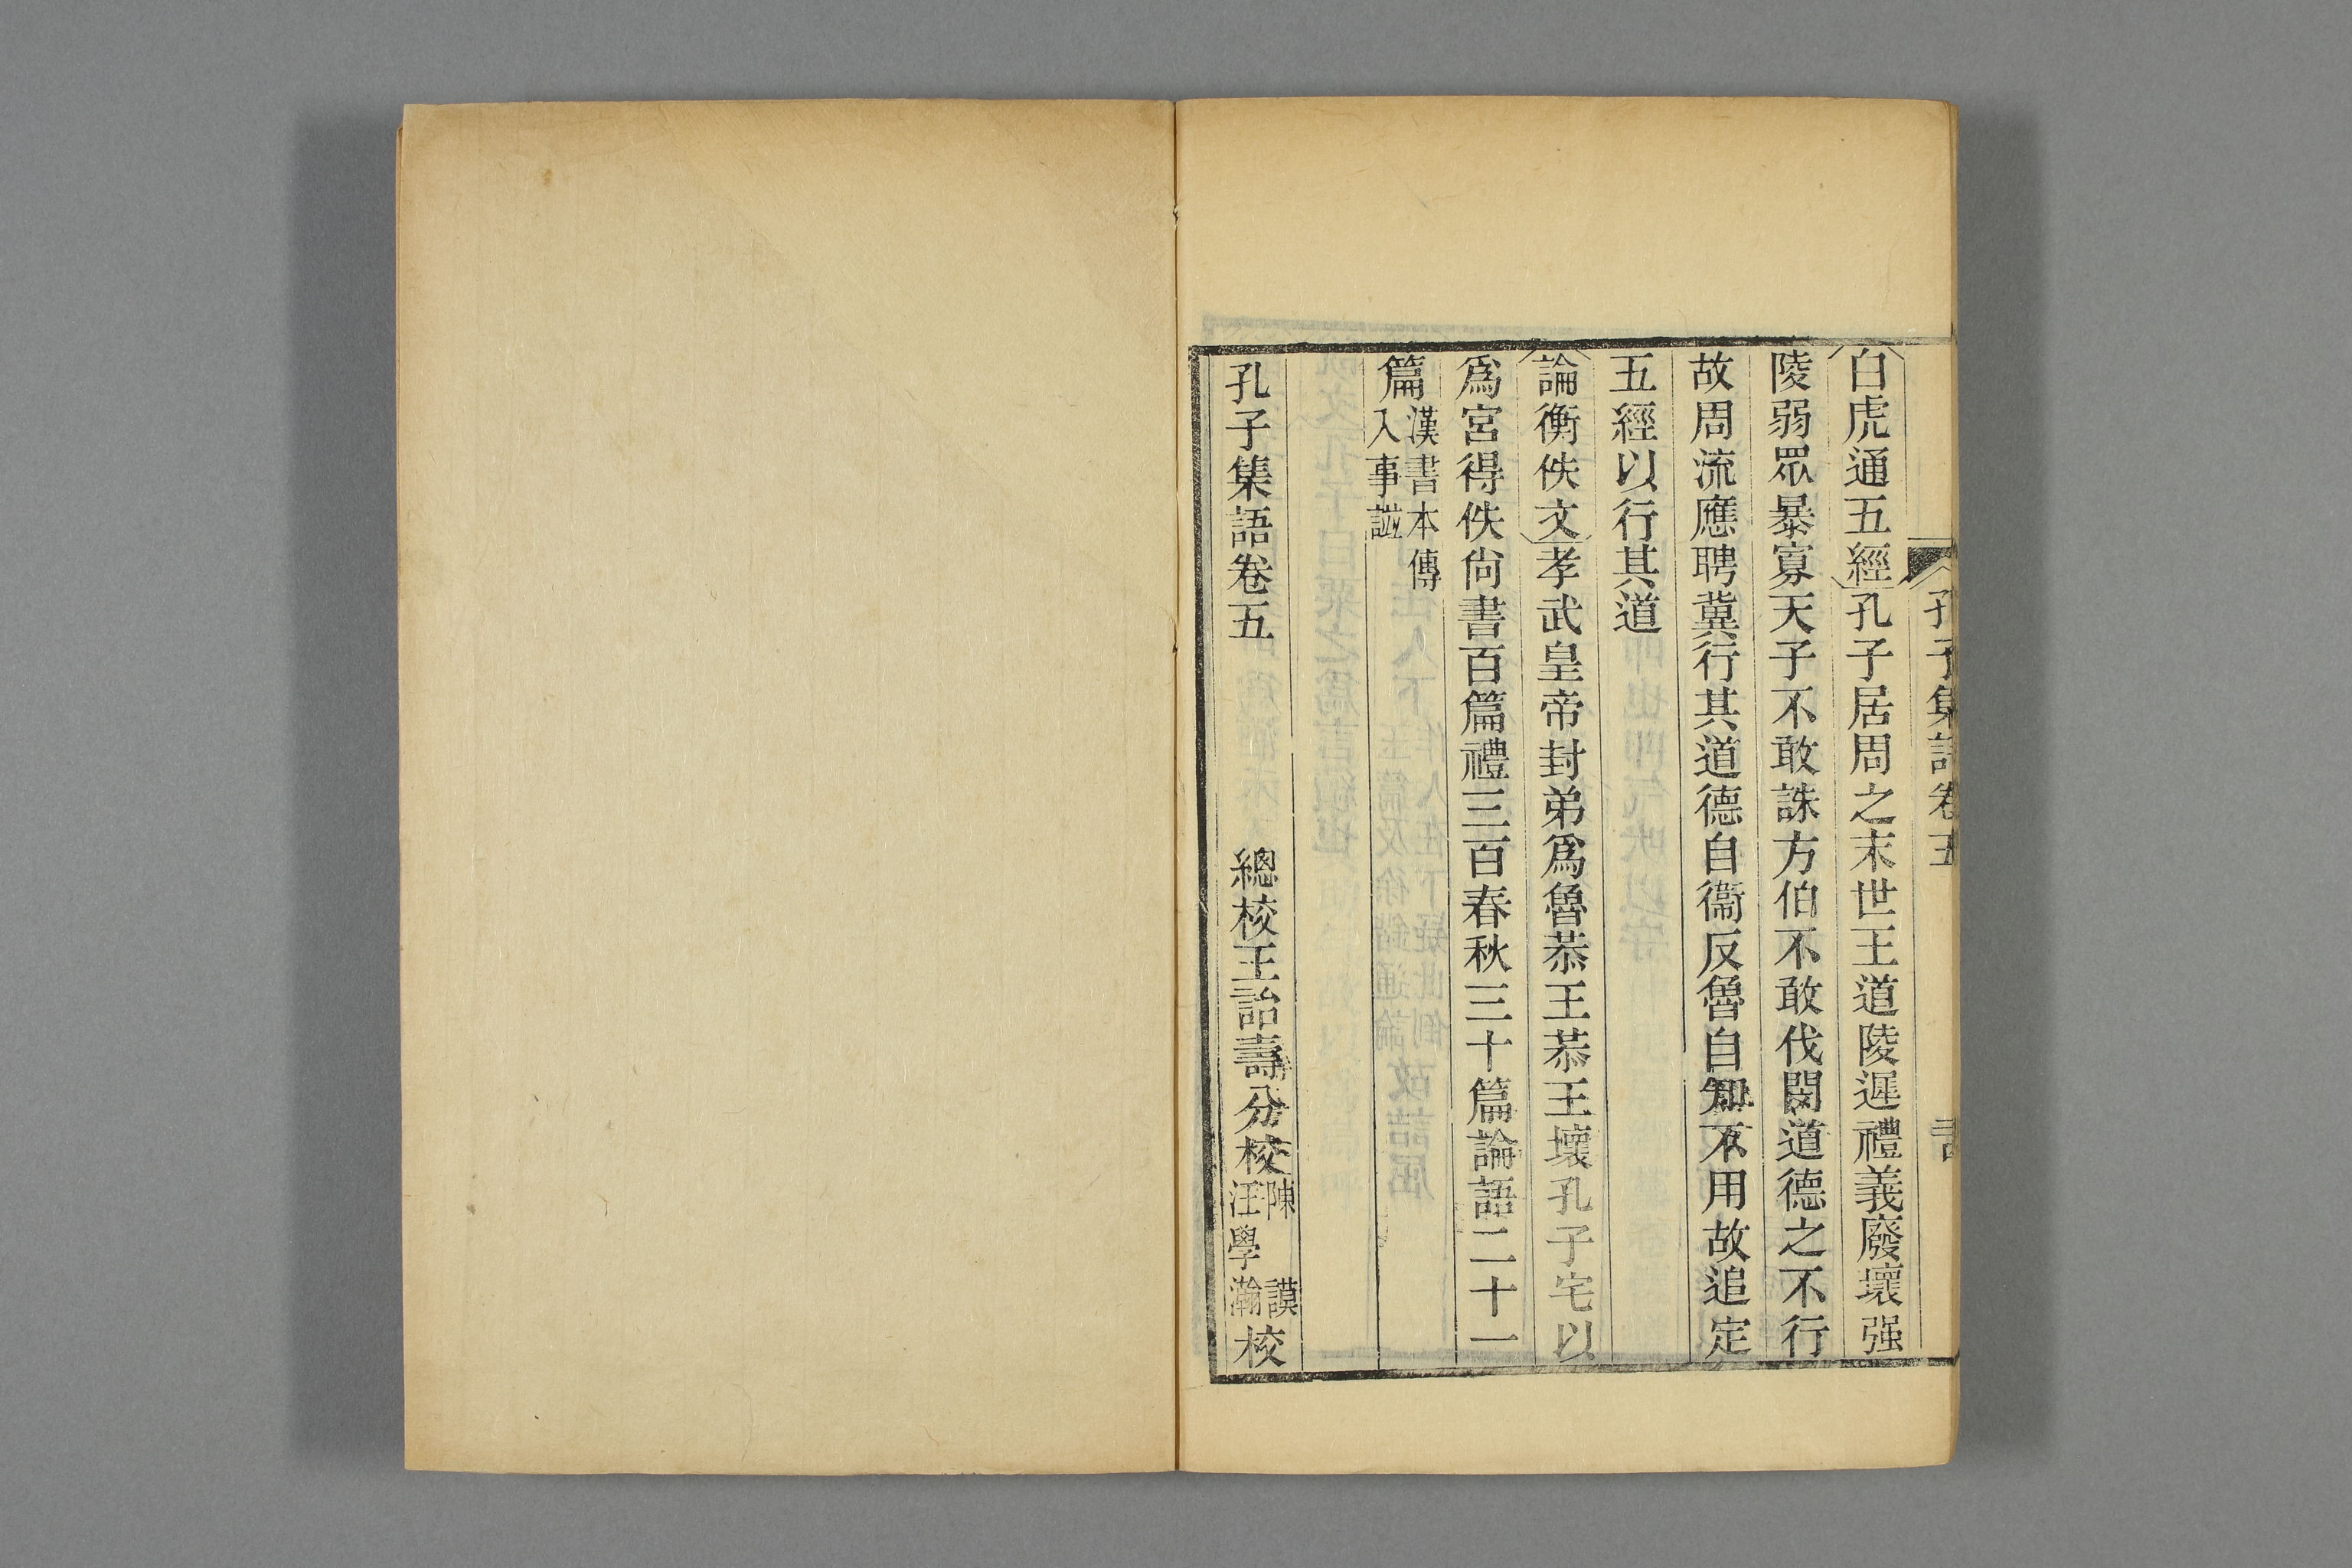 孔子集語卷五
白虎通五經孔子居周之末世王道陵遲禮義廢壞强
陵弱眾暴寡天子不敢誅方伯不敢伐閔道德之不行
故周流應聘冀行其道德自衞反魯自知不用故追定
五經以行其道
論衡佚文孝武皇帝封弟爲魯恭王恭王壞孔子宅以
爲宮得佚尙書百篇禮三百春秋三十篇論語二十一
篇漢書本傳入事諩
孔子集語卷五 總校王詒壽分校陳謨汪學瀚校